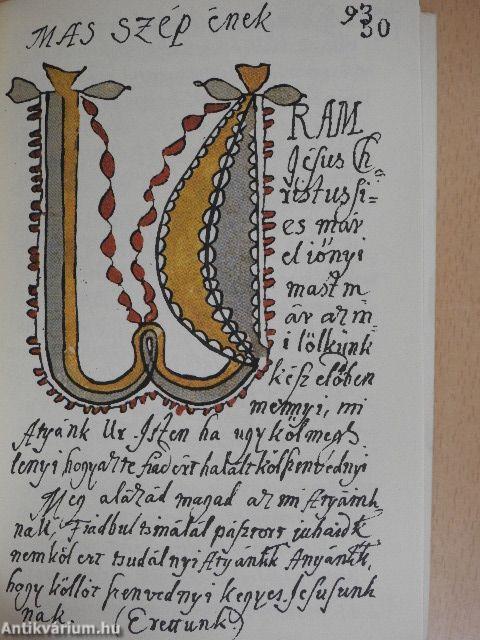 MAS SZÉP ÉNEK
93
50
URAM
Jésus Ch
ristus si=
es már
el iőnyi
mast m
ár az m
i lölkünk
kész elöben
mennyi, mi
Atyánk Ur Isten ha ugy köl megh
lenyi hogy az te fiadért halált köl szenvédnyi
Meg alázád magad az mi Atyáink
nak, Fiadbul tsinálál pásztort juhaidk
nem köl ezt tsudálnyi Atyánk Anyánk,
hogy köllöt szenvednyi kegyes Jesusunk
nak. (Erettunk)
Antikvárium.hu